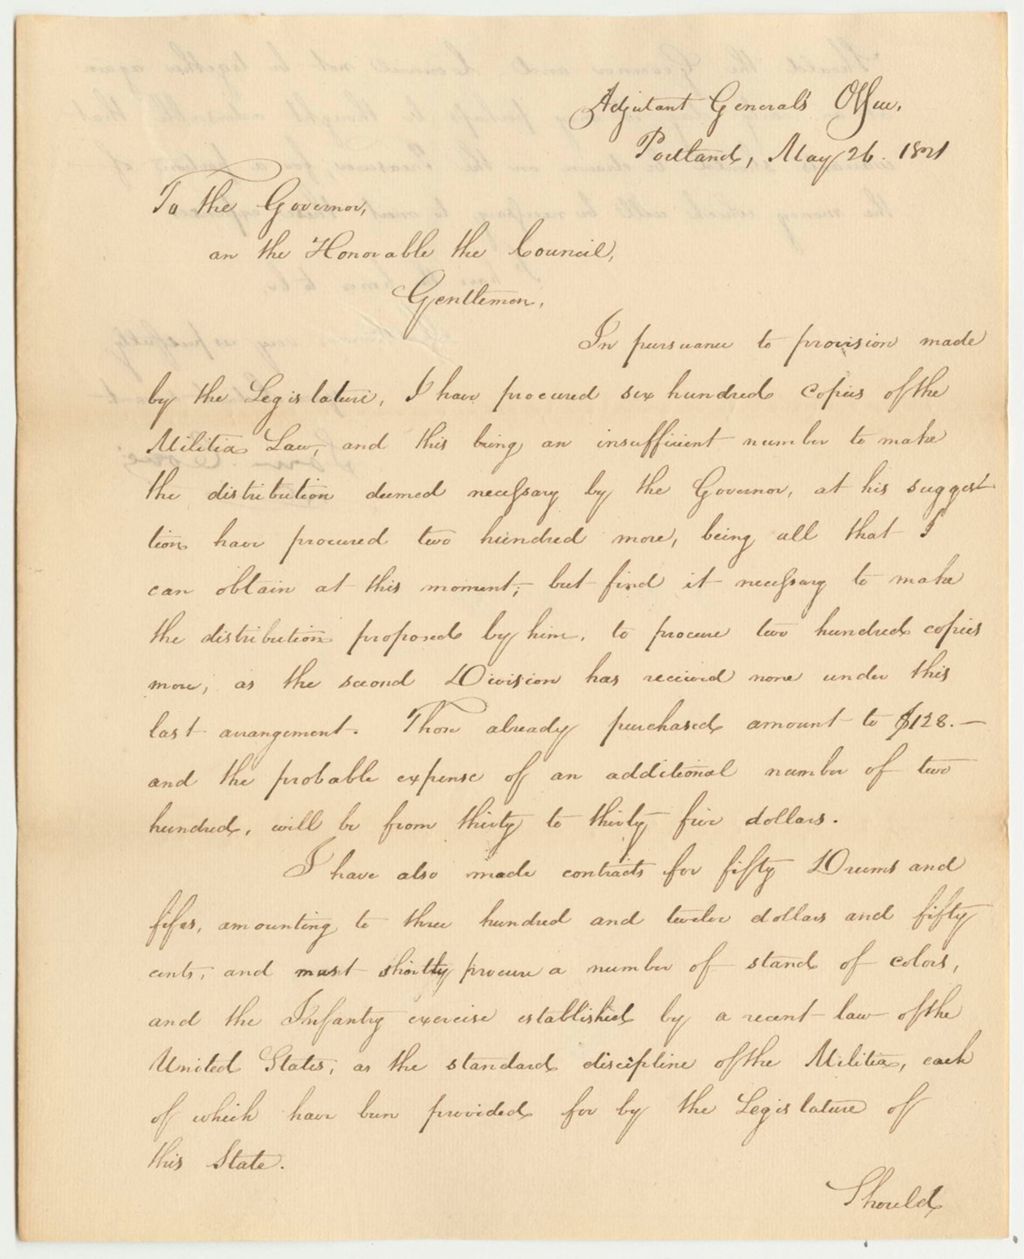 Adjutant General's Office,
Portland, May 26. 1821
To the Governor,
an the Honorable the Council,
Gentlemen,
In pursuance to provision made
by the Legislature, I have procured six hundred copies of the
Militia Law, and this being an insufficient number to make
the distribution deemed necessary by the Governor, at his suggest
tion have procured two hundred more, being all that I
can obtain at this moment; but find it necessary to make
the distribution proposed by him, to procure two hundred copies
more, as the second Division has received none under this
last arrangement. Those already purchased amount to $128.—
and the probable expense of an additional number of two
hundred, will be from thirty to thirty five dollars.
I have also made contracts for fifty Drums and
fifes, amounting to three hundred and twelve dollars and fifty
cents, and must shortly procure a number of stand of colors,
and the Infantry exercise established by a recent law of the
United States, as the standard discipline of the Militia, each
of which have been provided for by the Legislature of
this State.
Should